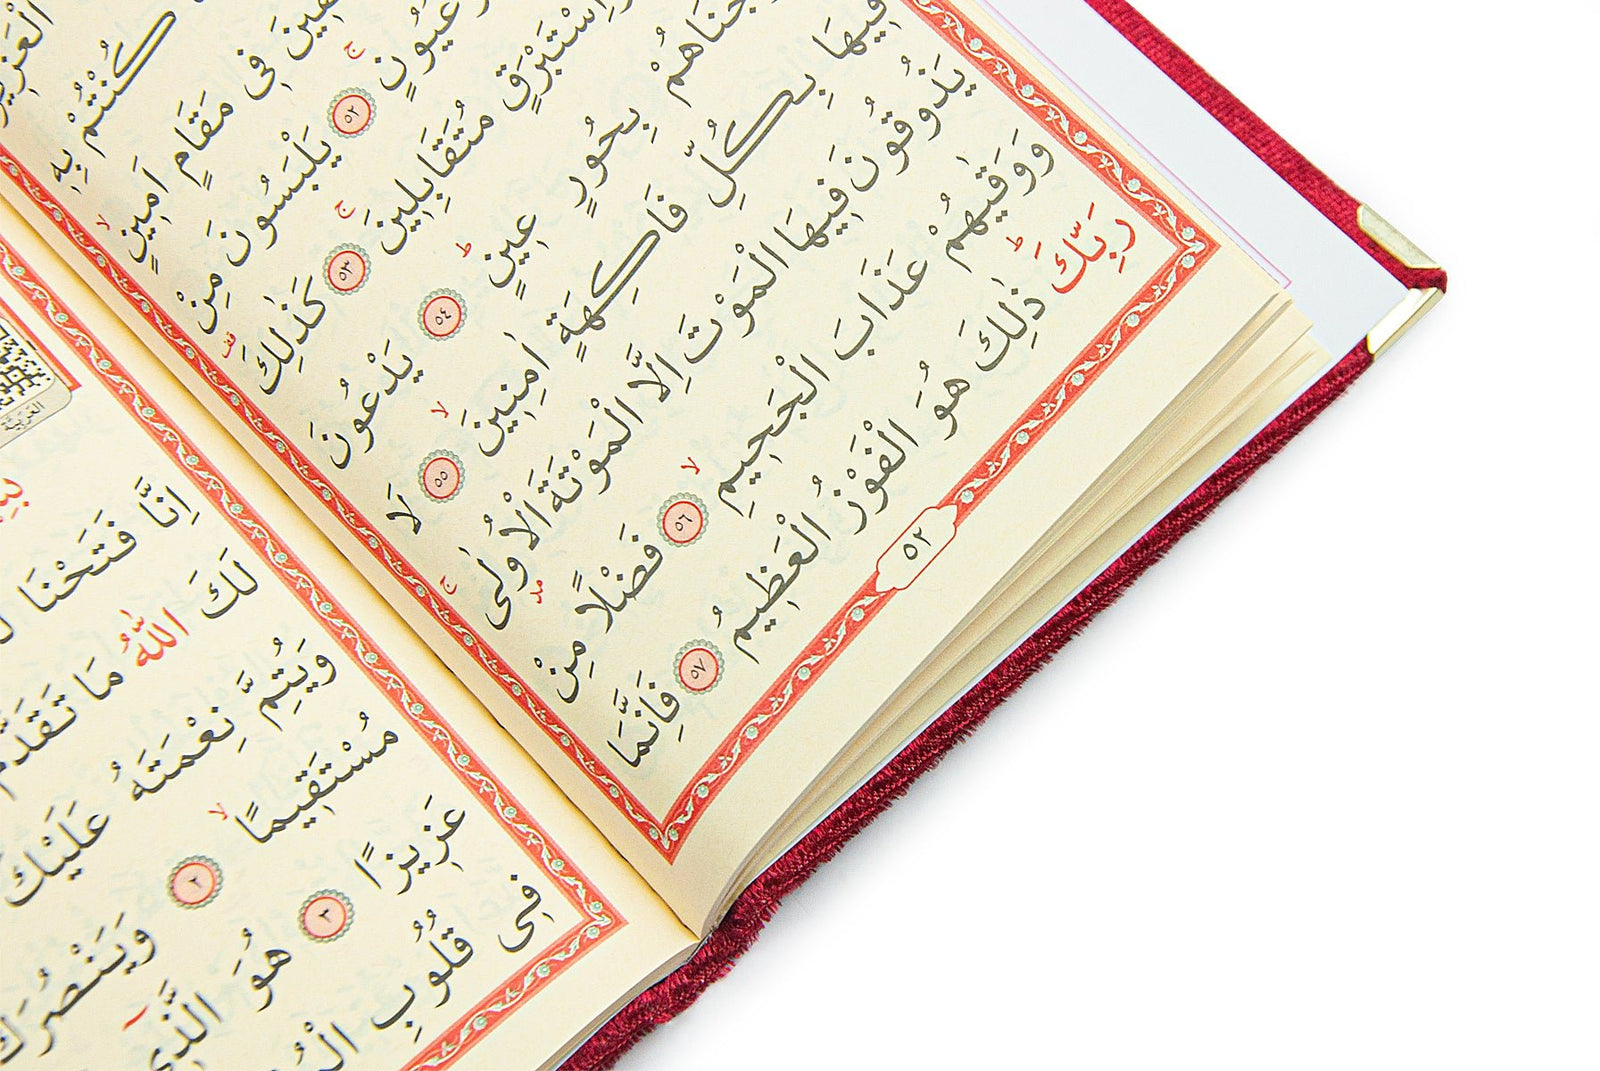 كُنْتُمْ بِهِ
فِى مَقَامٍ اَمِينٍ
وَعُيُونٍ ٥٢ يَلْبَسُونَ مِنْ
وَاِسْتَبْرَقٍ مُتَقَابِلِينَ ٥٣ كَذٰلِكَ
بِحُورٍ عِينٍ ٥٤ يَدْعُونَ
فِيهَا بِكُلِّ فَاكِهَةٍ اٰمِنِينَ ٥٥ لَا
يَذُوقُونَ فِيهَا الْمَوْتَ اِلَّا الْمَوْتَةَ الْاُولٰى
وَوَقٰيهُمْ عَذَابَ الْجَحِيمِ ٥٦ فَضْلًا مِنْ
رَبِّكَ ذٰلِكَ هُوَ الْفَوْزُ الْعَظِيمُ ٥٧ فَاِنَّمَا
٥٢
العربية
اِنَّا فَتَحْنَا
لَكَ اللّٰهُ مَا تَقَدَّمَ
وَيُتِمَّ نِعْمَتَهُ عَلَيْكَ
مُسْتَقِيمًا ٢ وَيَنْصُرَكَ
عَزِيزًا ٣ هُوَ الَّذِى
فِى قُلُوبِ